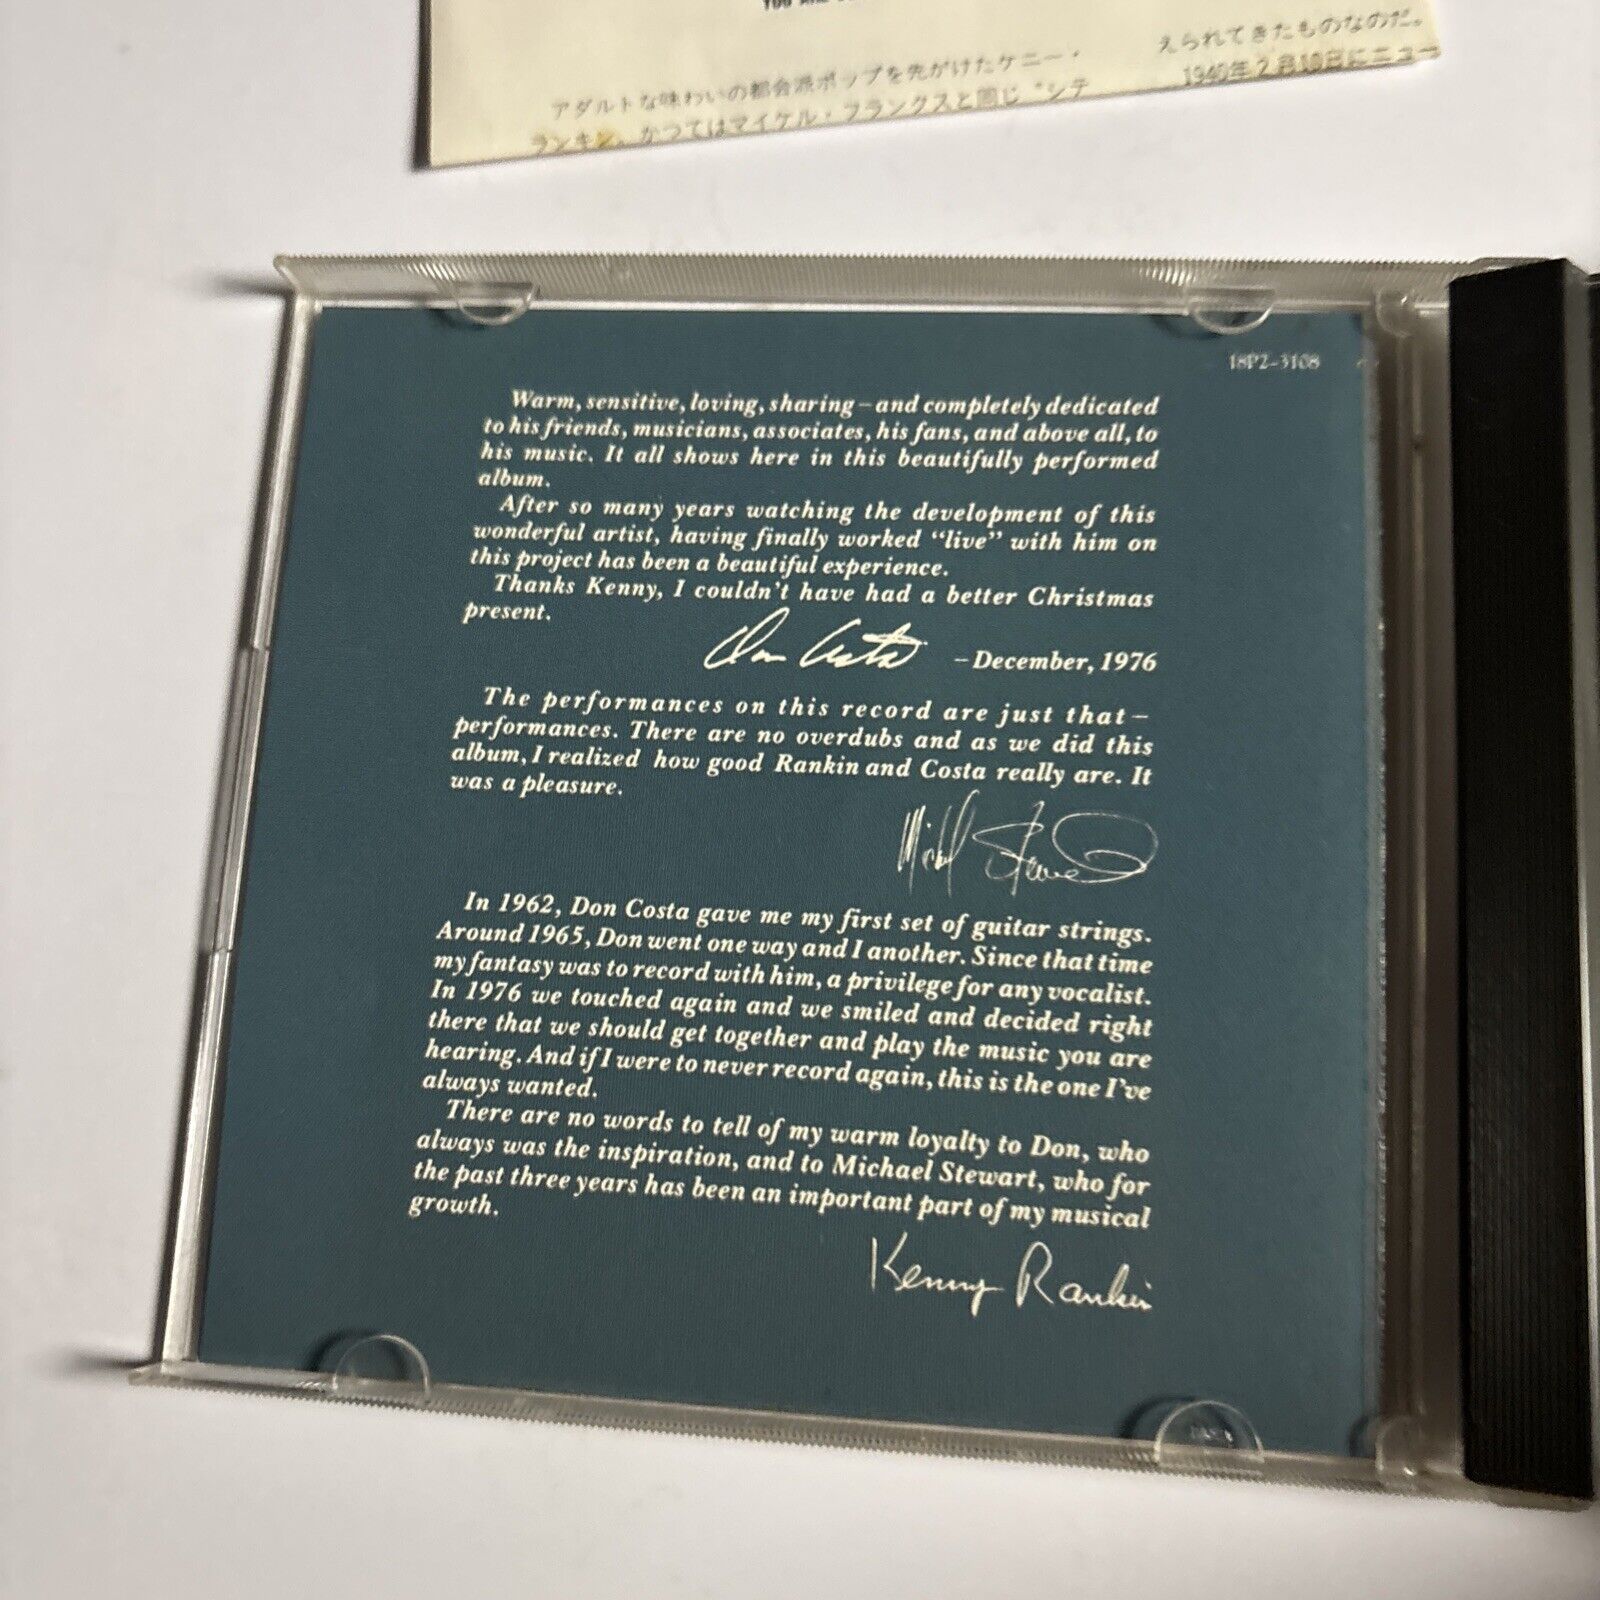 アダルトな味わいの都会派ポップを先がけたケニー・
ランキン、かつてはマイケル・フランクスと同じ“シテ
えられてきたものなのだ。
1940年2月10日にニュー
18P2-3108
Warm, sensitive, loving, sharing–and completely dedicated
to his friends, musicians, associates, his fans, and above all, to
his music. It all shows here in this beautifully performed
album.
After so many years watching the development of this
wonderful artist, having finally worked “live” with him on
this project has been a beautiful experience.
Thanks Kenny, I couldn't have had a better Christmas
present.
Don Costa –December, 1976
The performances on this record are just that–
performances. There are no overdubs and as we did this
album, I realized how good Rankin and Costa really are. It
was a pleasure.
Michael Stewart
In 1962, Don Costa gave me my first set of guitar strings.
Around 1965, Don went one way and I another. Since that time
my fantasy was to record with him, a privilege for any vocalist.
In 1976 we touched again and we smiled and decided right
there that we should get together and play the music you are
hearing. And if I were to never record again, this is the one I've
always wanted.
There are no words to tell of my warm loyalty to Don, who
always was the inspiration, and to Michael Stewart, who for
the past three years has been an important part of my musical
growth.
Kenny Rankin